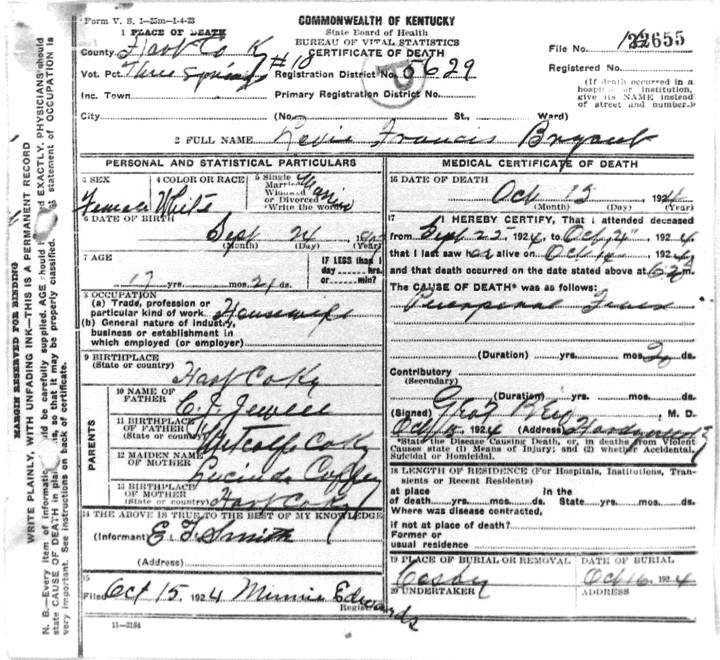 Form V. S. 1—25m—1-4-23
COMMONWEALTH OF KENTUCKY
State Board of Health
BUREAU OF VITAL STATISTICS
CERTIFICATE OF DEATH
1 PLACE OF DEATH
County Hart Co Ky
File No. 22655
Vot. Pct. Three Springs #10
Registration District No. 5629
Registered No.
Inc. Town
Primary Registration District No.
(If death occurred in a hospital or institution, give its NAME instead of street and number.)
City
(No. St., Ward)
2 FULL NAME Francis Bryant
PERSONAL AND STATISTICAL PARTICULARS
3 SEX Female
4 COLOR OR RACE White
5 Single Married Widowed or Divorced (Write the word)
6 DATE OF BIRTH
Sept 24
(Month) (Day) (Year)
7 AGE
17 yrs. mos. 21 ds.
IF LESS than 1 day hrs. or min?
8 OCCUPATION
(a) Trade, profession or particular kind of work. Housewife
(b) General nature of industry, business or establishment in which employed (or employer)
9 BIRTHPLACE
(State or country) Hart Co Ky
PARENTS
10 NAME OF FATHER Jewell
11 BIRTHPLACE OF FATHER (State or country) Metcalfe Co Ky
12 MAIDEN NAME OF MOTHER Lucinda Coffey
13 BIRTHPLACE OF MOTHER (State or country) Hart Co Ky
14 THE ABOVE IS TRUE TO THE BEST OF MY KNOWLEDGE
(Informant) Smith
(Address)
15
Filed Oct 15, 1924 Minnie Edwards
Registrar
11—3184
MEDICAL CERTIFICATE OF DEATH
16 DATE OF DEATH
Oct 15 1924
(Month) (Day) (Year)
17 I HEREBY CERTIFY, That I attended deceased
from Sept 25 1924, to Oct 1924,
that I last saw alive on Oct 1924,
and that death occurred on the date stated above at m.
The CAUSE OF DEATH* was as follows:
Puerperal Fever
(Duration) yrs. mos. ds.
Contributory
(Secondary)
(Duration) yrs. mos. ds.
(Signed) M. D.
Oct 1924
*State the Disease Causing Death, or, in deaths from Violent Causes state (1) Means of Injury; and (2) whether Accidental, Suicidal or Homicidal.
18 LENGTH OF RESIDENCE (For Hospitals, Institutions, Transients or Recent Residents)
at place of death yrs. mos. ds. In the State yrs. mos. ds.
Where was disease contracted,
if not at place of death?
Former or
usual residence
19 PLACE OF BURIAL OR REMOVAL
DATE OF BURIAL
Cosby
Oct 16, 1924
20 UNDERTAKER
ADDRESS
MARGIN RESERVED FOR BINDING
WRITE PLAINLY, WITH UNFADING INK—THIS IS A PERMANENT RECORD
N. B.—Every item of information should be carefully supplied. AGE should be EXACTLY. PHYSICIANS should
state CAUSE OF DEATH in plain so that it may be properly classified. statement of OCCUPATION is
very important. See instructions on back of certificate.